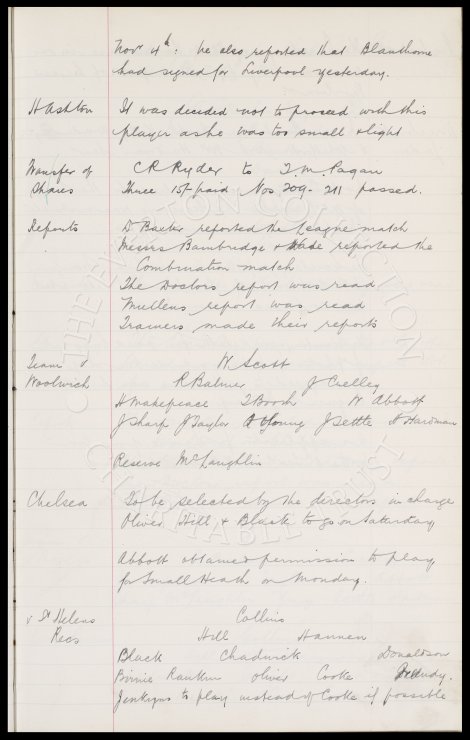 Nov 4th. He also reported that Blanthorne
had signed for Liverpool yesterday.
H Ashton It was decided not to proceed with this
player as he was too small & light
Transfer of C R Ryder to T M Pagan
Shares three 15/- paid Nos 209-211 passed.
Reports Dr Baxter reported the League match
Messrs Bainbridge & Wade reported the
Combination match
The Doctors report was read
Mullens report was read
Trainers made their reports
Team v W Scott
Woolwich R Balmer J Crelley
H Makepeace T Booth W Abbott
J Sharp J Taylor A Young J Settle H Hardman
Reserve McLaughlin
Chelsea To be selected by the directors in charge
Oliver Hill & Black to go on Saturday
Abbott obtained permission to play
for Small Heath on Monday.
v St Helens Collins
Recs Hill Hannen
Black Chadwick Donaldson
Birnie Rankin Oliver Cooke
Jenkyns to play instead of Cooke if possible
THE EVERTON COLLECTION
CHARITABLE TRUST